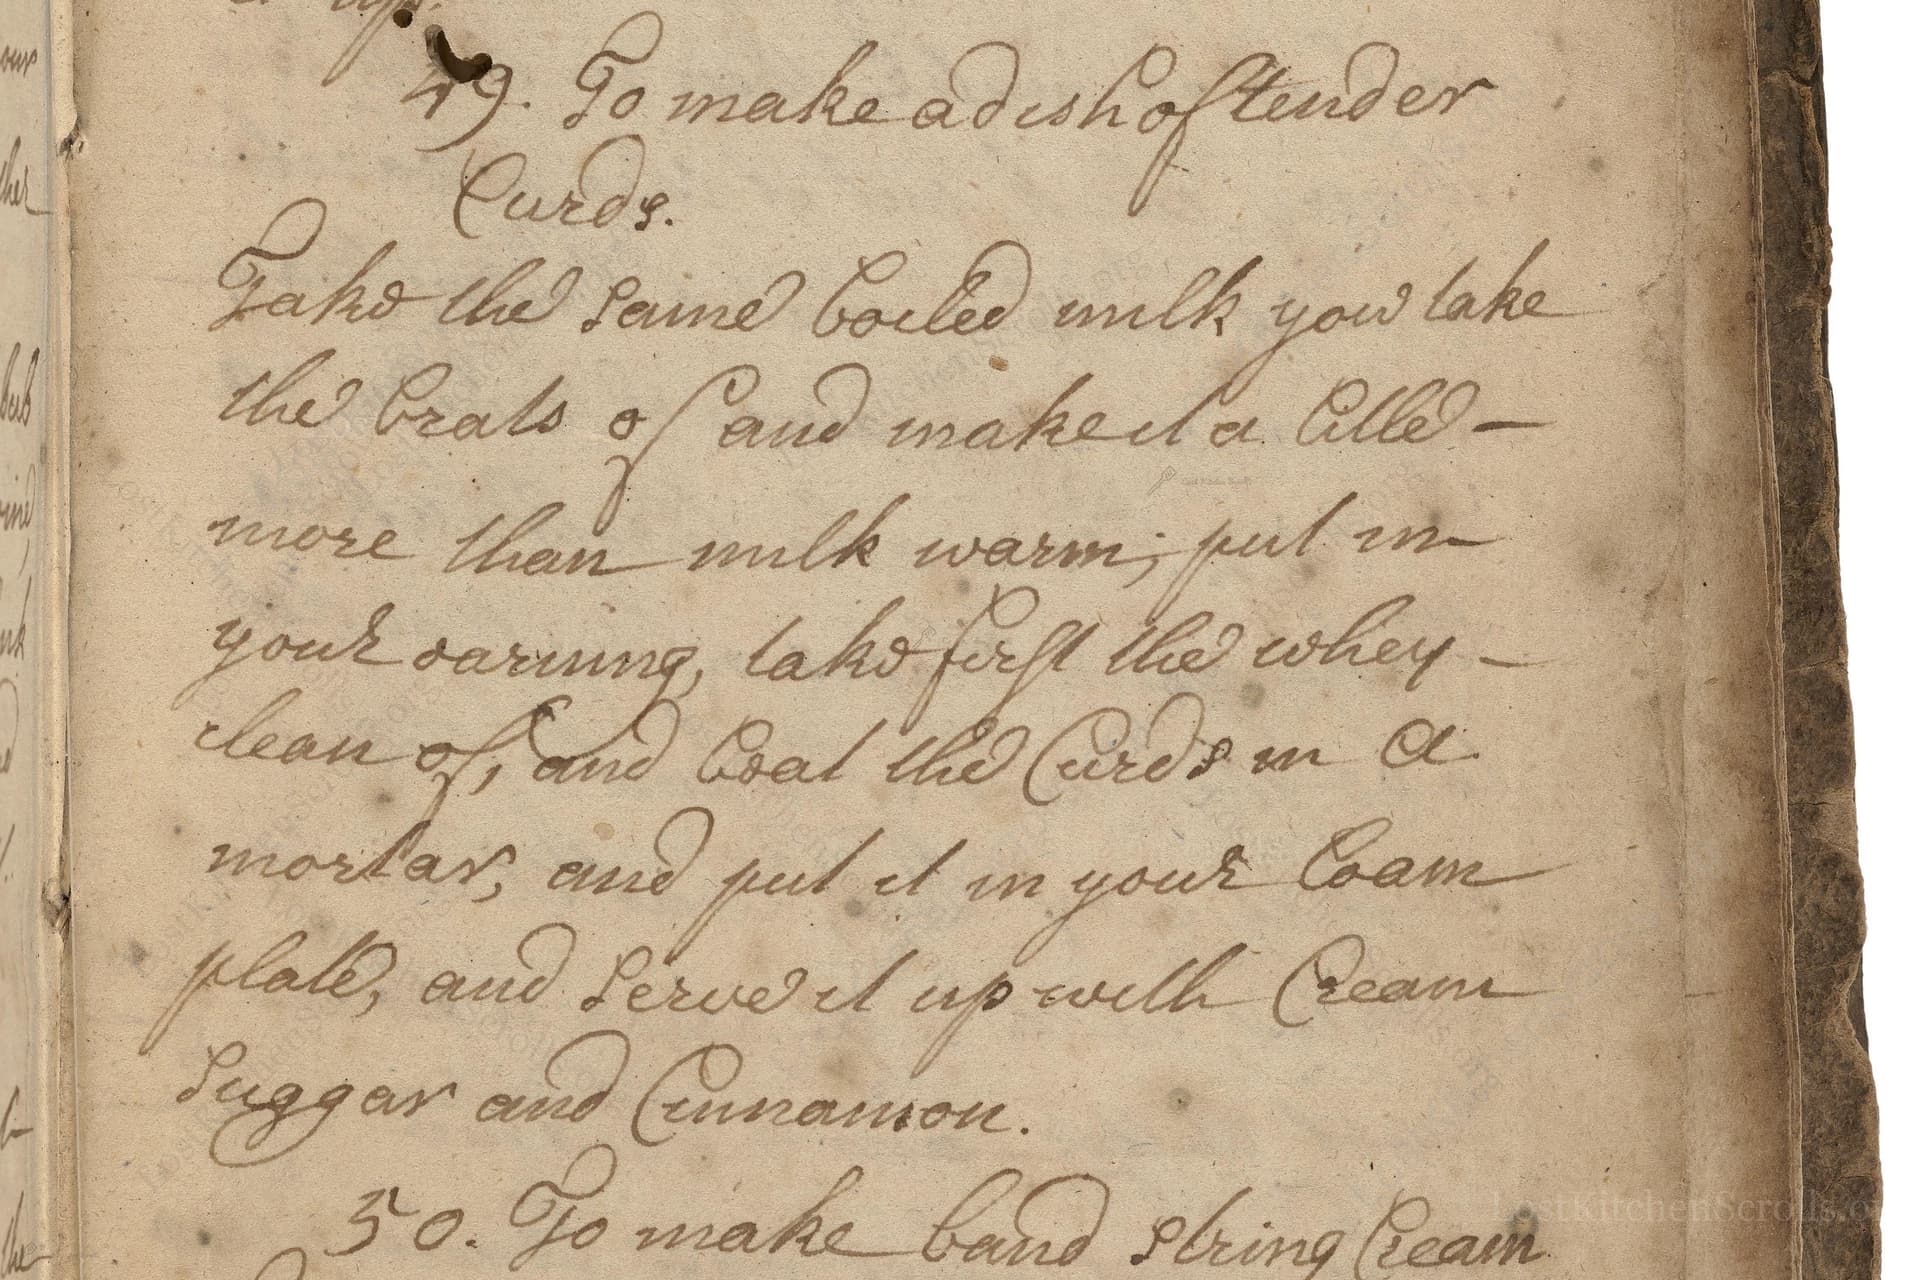 49. To make a dish of tender
Curds.
Take the same boiled milk you take
the brats of and make it a little –
more than milk warm; put in
your earning, take first the whey –
clean of, and beat the Curds in a
mortar, and put it in your Coam
plate, and serve it up with Cream
Suggar and Cinnamon.
50. To make band string Cream
LostKitchenScrolls.or